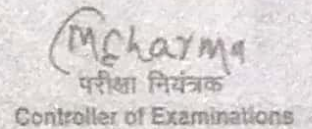 MCharma
परीक्षा नियंत्रक
Controller of Examinations